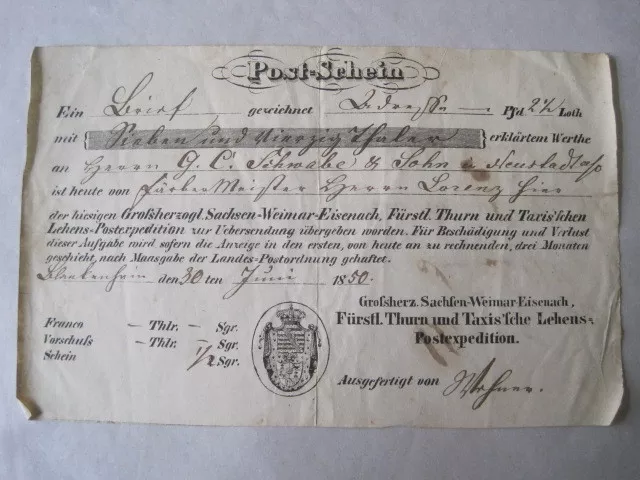 Post-Schein
Ein Brief gezeichnet Adresse — Pfd 2½ Loth
mit Sieben und vierzig Thaler erklärtem Werthe
an Herrn G. C. Schwabe & Sohn in Neustadt a/o
ist heute von Färber Meister Herrn Lorenz hier
der hiesigen Großherzogl. Sachsen-Weimar-Eisenach, Fürstl. Thurn und Taxis'schen
Lehens-Posterpedition zur Uebersendung übergeben worden. Für Beschädigung und Verlust
dieser Aufgabe wird sofern die Anzeige in den ersten, von heute an zu rechnenden, drei Monaten
geschieht, nach Maasgabe der Landes-Postordnung gehaftet.
Blankenhein den 30 ten Juni 1850.
Großherz. Sachsen-Weimar-Eisenach,
Fürstl. Thurn und Taxis'sche Lehens-
Postexpedition.
Franco — Thlr. — Sgr.
Vorschuß — Thlr. — Sgr.
Schein ½ Sgr.
Ausgefertigt von